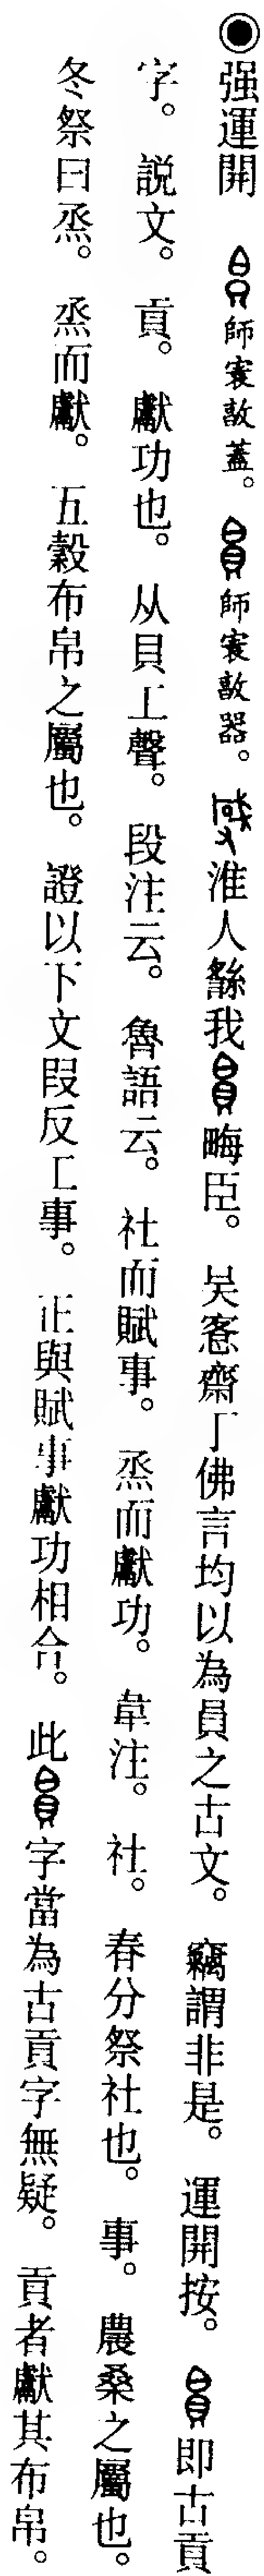 ◉强運開　師㝨敦蓋。師㝨敦器。淮人繇我畮臣。吴愙齋丁佛言均以為員之古文。竊謂非是。運開按。即古貢
字。説文。貢。獻功也。从貝工聲。段注云。魯語云。社而賦事。烝而獻功。韋注。社。春分祭社也。事。農桑之屬也。
冬祭曰烝。烝而獻。五穀布帛之屬也。證以下文叚反工事。正與賦事獻功相合。此字當為古貢字無疑。貢者獻其布帛。